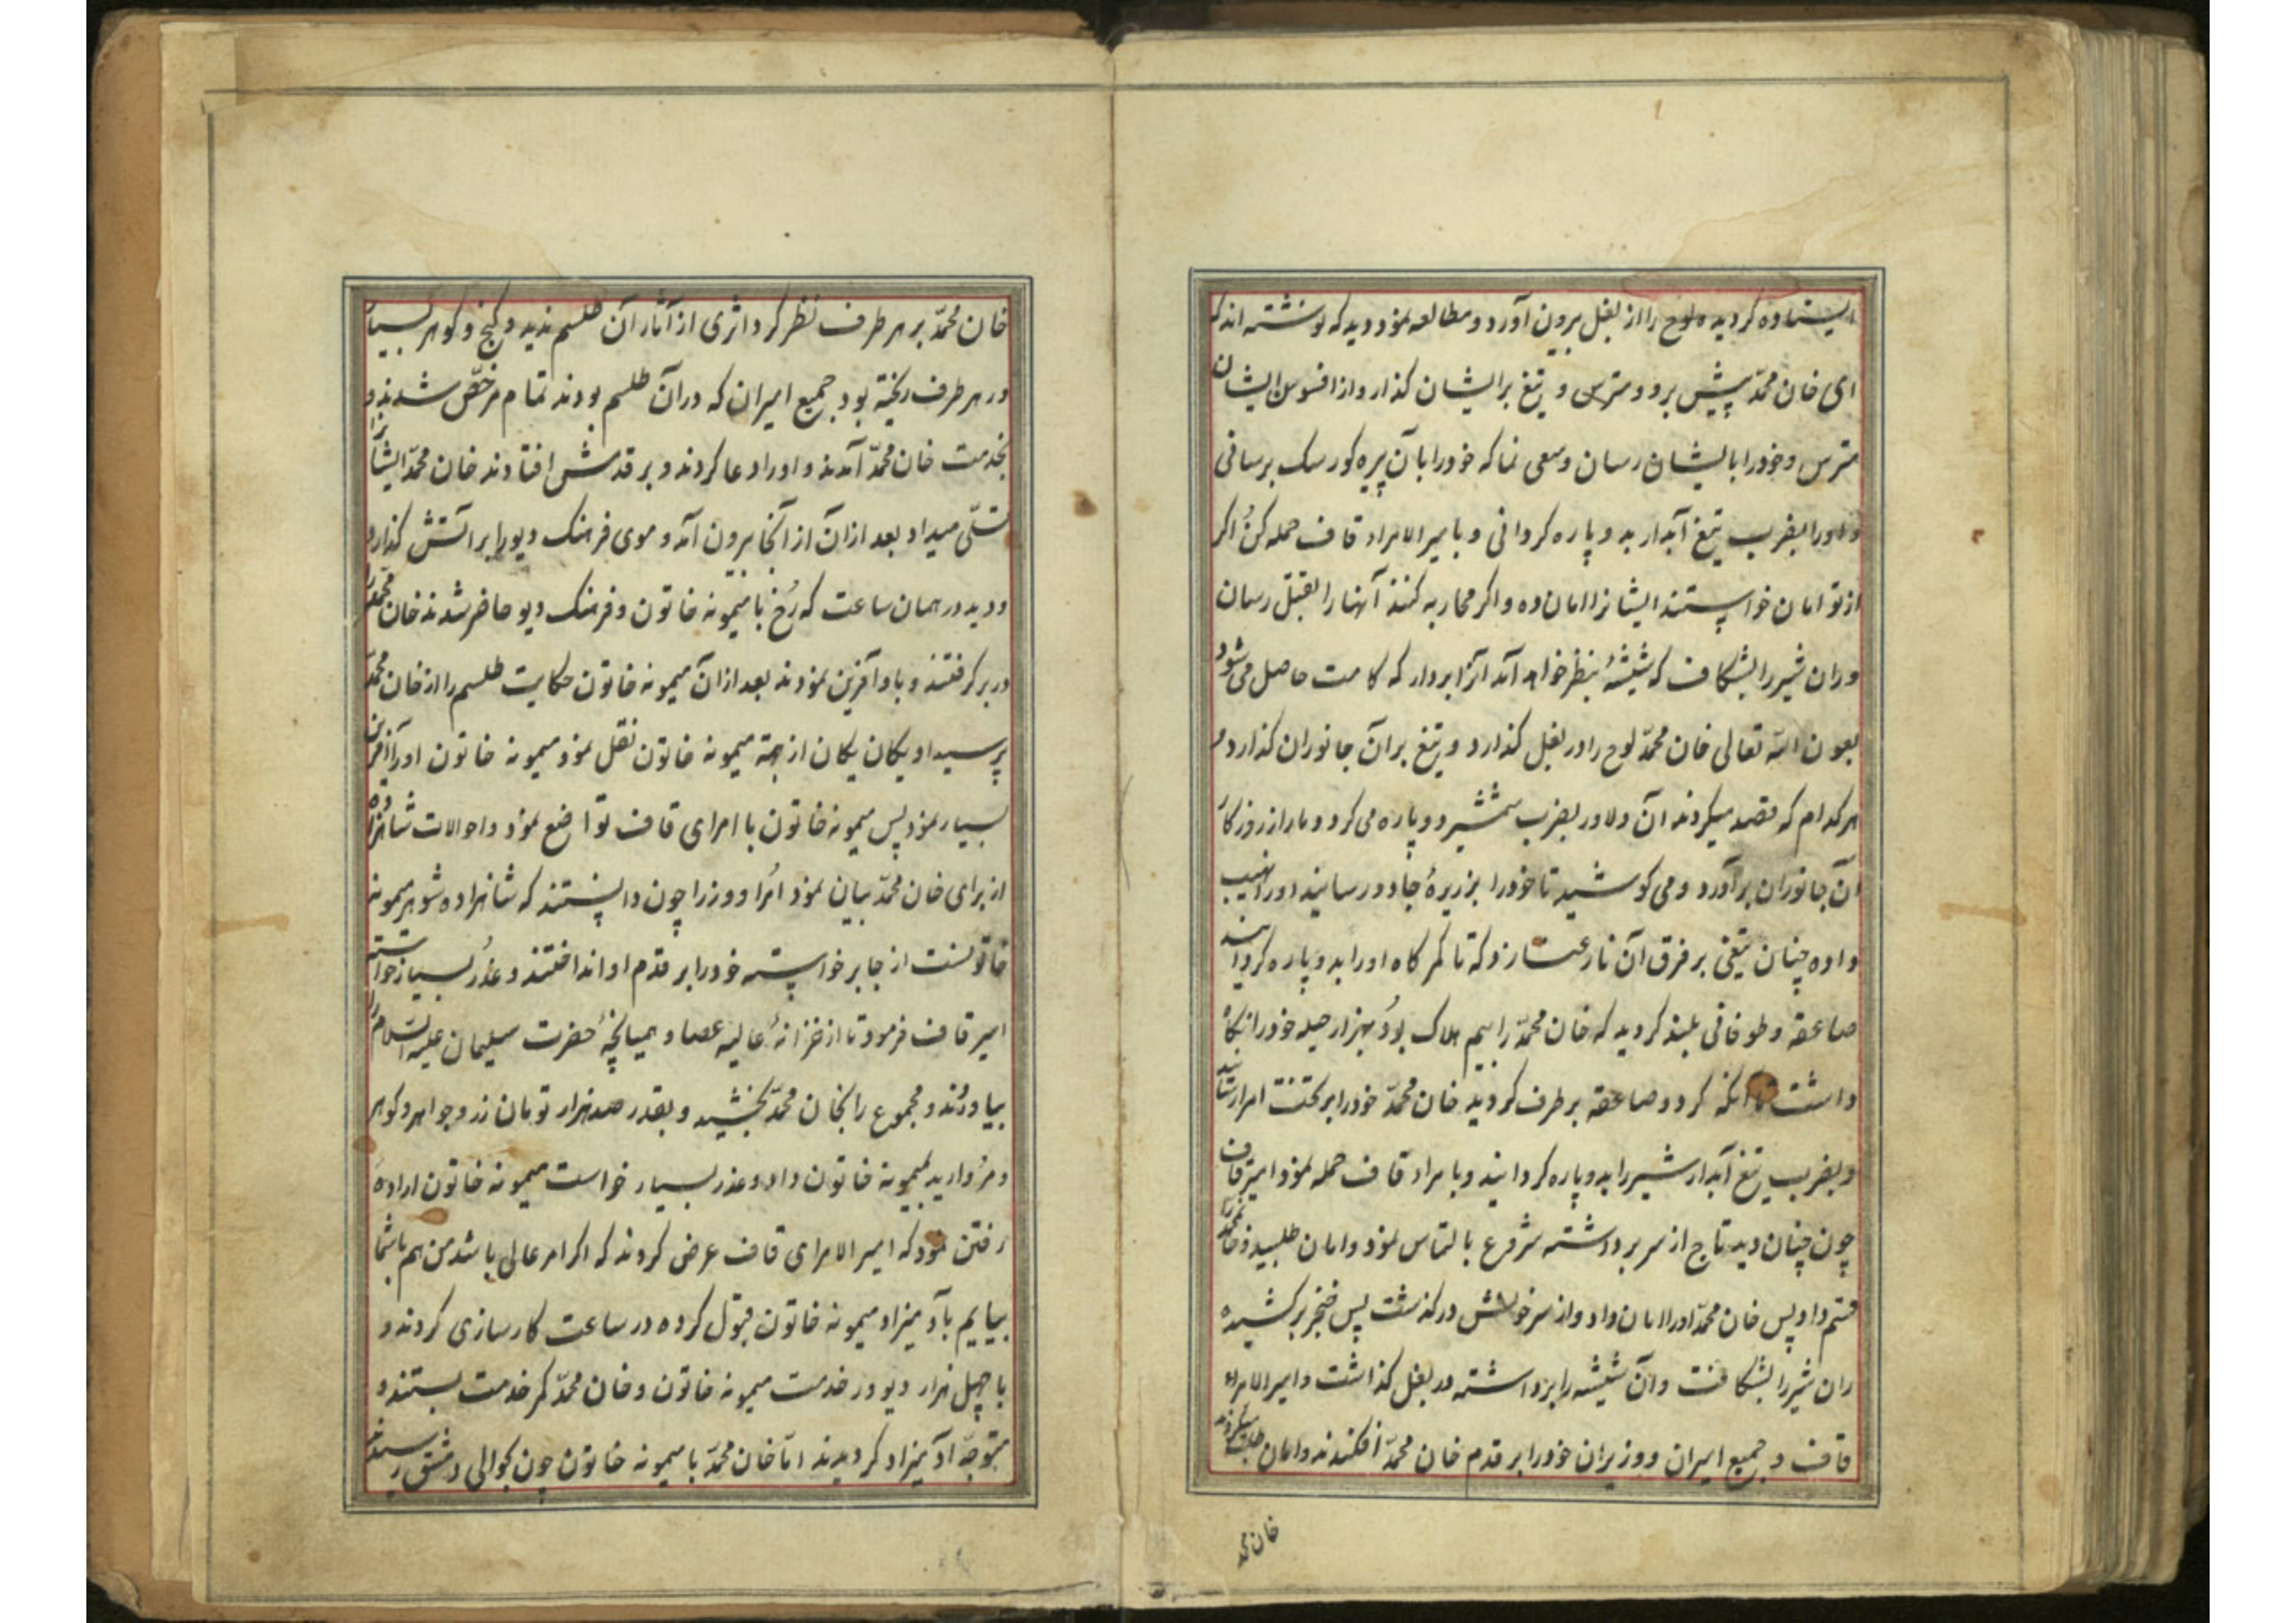 ایستاده گردیده لوح را از بغل بیرون آورد و مطالعه نمود دید که نوشته اند که
ای خان محمّد پیش برو و مترس و تیغ بر ایشان گذار و از افسوس ایشان
مترس و خود را با ایشان رسان و سعی نما که خود را با آن پیره کور سک برسانی
و او را بضرب تیغ آبدار بدو پاره کردانی و بامیر الامراء قاف حمله کن اکر
از تو امان خواستند ایشانرا امان ده و اکر محاربه کنند آنها را بقتل رسان
و ران شیر را بشکاف که شیشۀ بنظر خواهد آمد آنرا بردار که کامت حاصل می شود
بعون الله تعالی خان محمّد لوح را در بغل کذارد و تیغ بر آن جانوران کذارد و
هر کدام که قصد میکردند آن دلاور بضرب شمشیر دو پاره می کرد و دمار از روزکار
آن جانوران برآورد و می کوشید تا خود را بزیرۀ جادو رسانید او را نهیب
داده چنان تیغی بر فرق آن نارعنا زد که تا کمر کاه او را بدو پاره کردانید
صاعقه و طوفانی بلند کردید که خان محمّد را بیم هلاک بود بهزار حیله خود را نکاه
داشت تا آنکه کرد و صاعقه بر طرف کردید خان محمّد خود را بر تخت امرا رسانید
و بضرب تیغ آبدار شیر را بدو پاره کردانید و بامراء قاف حمله نمود امیر قاف
چون چنان دید تاج از سر برداشته شروع بالتماس نمود و امان طلبید و خانمحمد را
قسم داد پس خان محمّد او را امان داد و از سر خونش در کذشت پس خنجر بر کشیده
ران شیر را بشکافت و آن شیشه را برداشته در بغل کذاشت و امیر الامراء
قاف و جمیع امیران و وزیران خود را بر قدم خان محمّد افکندند و امان طلب میکردند
خان محمد
خان محمّد بر هر طرف نظر کرد اثری از آثار آن طلسم ندید و کنج و کوهر بسیار
در هر طرف ریخته بود جمیع امیران که در آن طلسم بودند تمام مرخّص شدند و
بخدمت خان محمّد آمدند و او را دعا کردند و بر قدمش افتادند خان محمّد ایشانرا
تسلّی میداد بعد از آن از آنجا بیرون آمد و موی فرهنک دیو را بر آتش کذارد
و دید در همان ساعت که رُخ با میمونه خاتون و فرهنک دیو حاضر شدند خان محمّد را
در بر کرفتند و باو آفرین نمودند بعد از آن میمونه خاتون حکایت طلسم را از خان محمّد
پرسید او یکان یکان از جهة میمونه خاتون نقل نمود میمونه خاتون او را آفرین
بسیار نمود پس میمونه خاتون با امرای قاف تواضع نمود و احوالات شاهزاده
از برای خان محمّد بیان نمود اُمرا و وزرا چون دانستند که شاهزاده شوهر میمونه
خاتونست از جا بر خواسته خود را بر قدم او انداختند و عذر بسیار خواستند
امیر قاف فرمود تا از خزانۀ عالیه عصا و همیانچۀ حضرت سلیمان علیه السّلام را
بیاوردند و مجموع را بخان محمّد بخشید و بقدر صد هزار تومان زر و جواهر و کوهر
و مروارید بمیمونه خاتون داد و عذر بسیار خواست میمونه خاتون ارادۀ
رفتن نمود که امیر الامرای قاف عرض کردند که اکر امر عالی باشد من هم با شما
بیایم بآدمیزاد میمونه خاتون قبول کرده در ساعت کارسازی کردند و
با چهل هزار دیو در خدمت میمونه خاتون و خان محمّد کمر خدمت بستند و
متوجّه آدمیزاد کردیدند امّا خان محمّد با میمونه خاتون چون بحوالی دمشق رسیدند